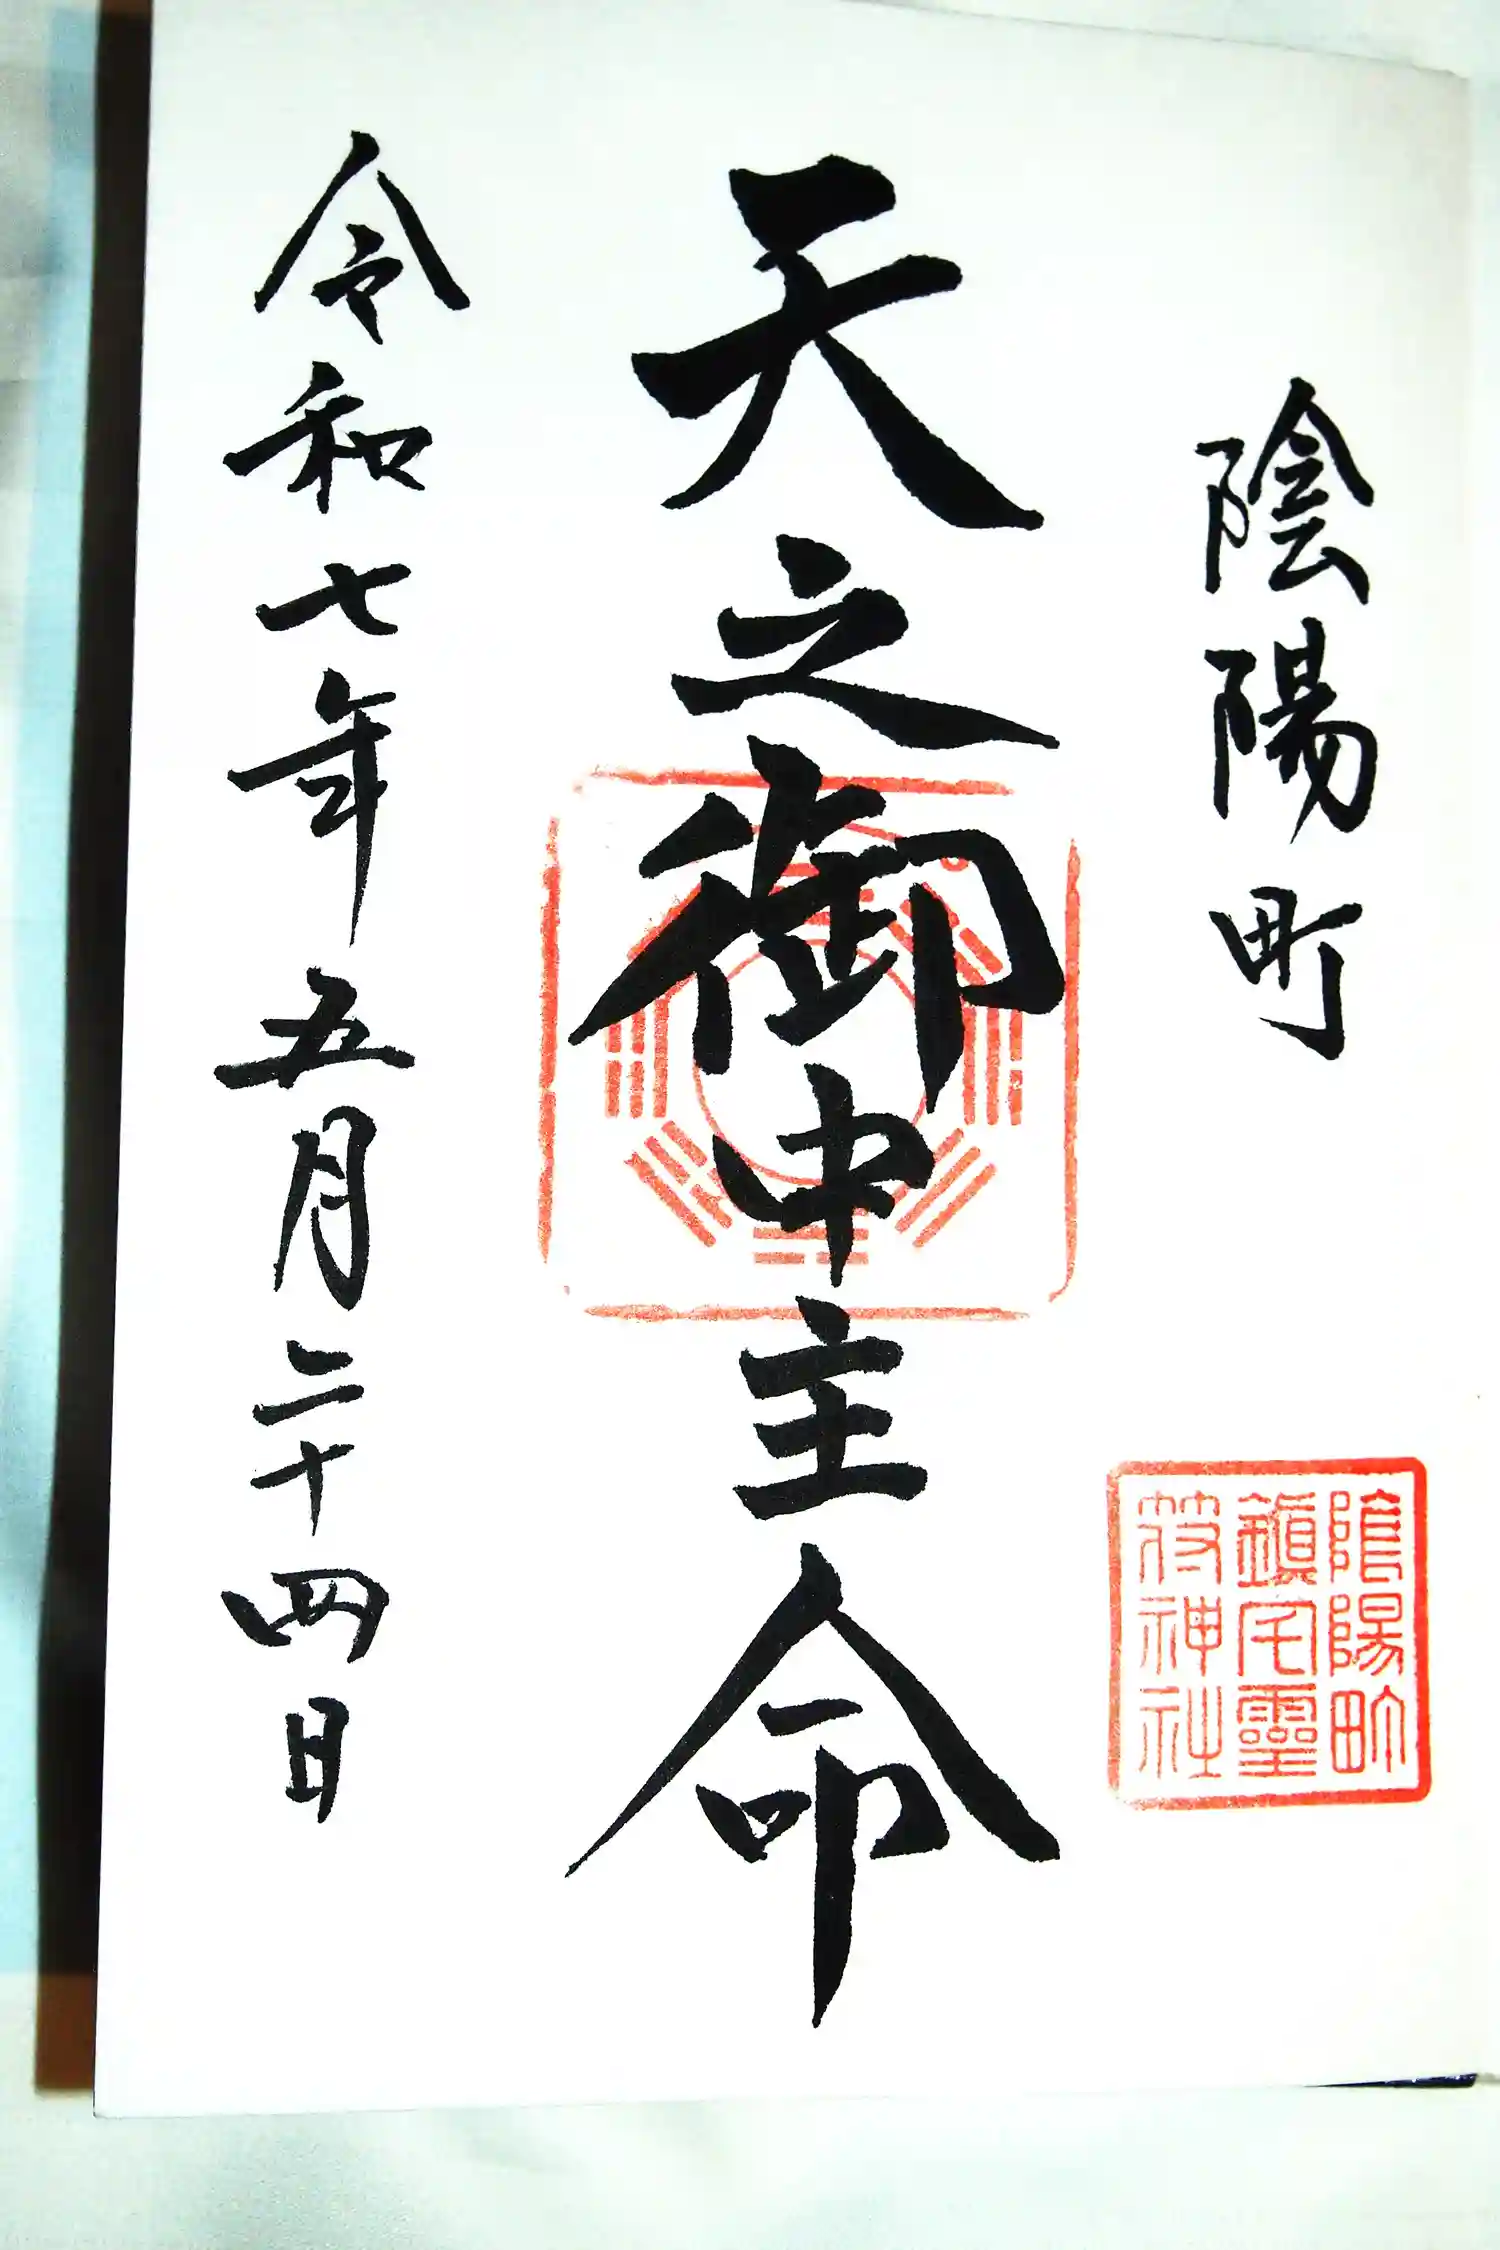 陰陽町
陰陽町
鎮宅霊
符神社
天之御中主命
令和七年五月二十四日